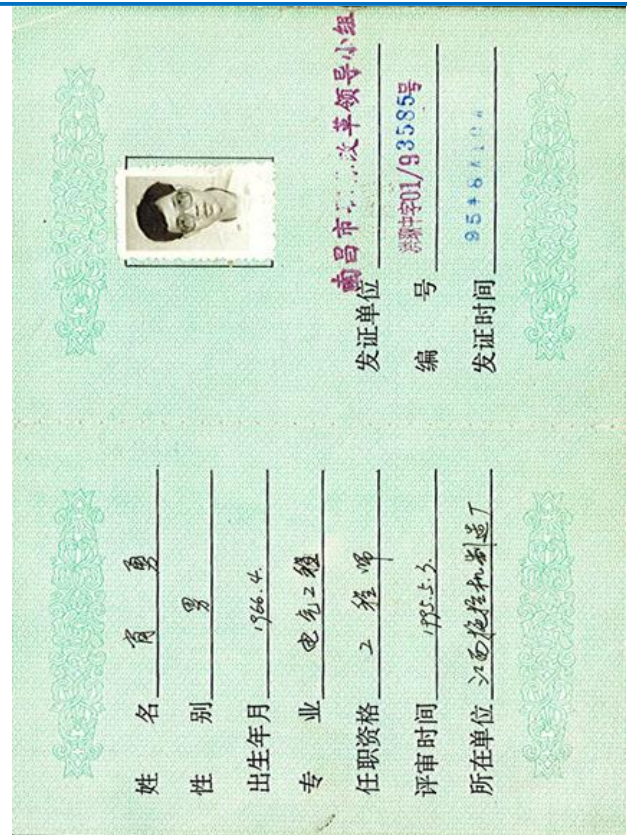 姓 名 肖 勇
性 别 男
出生年月 1966.4.
专 业 电气工程
任职资格 工程师
评审时间 1995.5.3.
所在单位 江西拖拉机制造厂
发证单位 南昌市 改革领导小组
编 号 洪职中字01/93585号
发证时间 95年8月10日